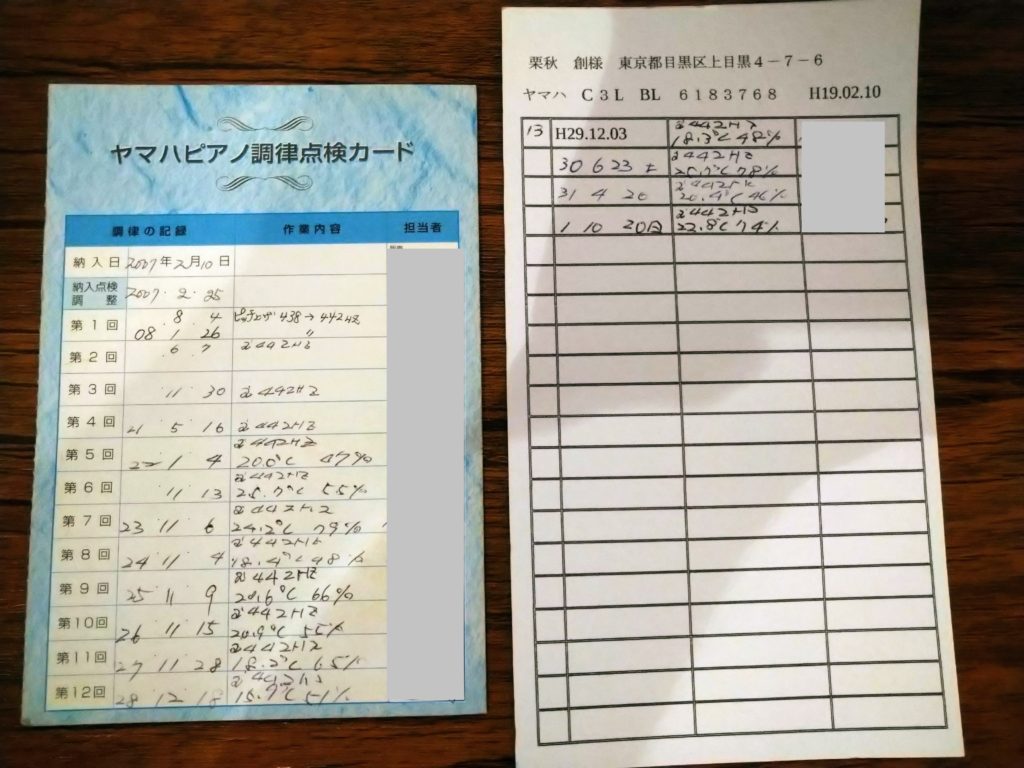 ヤマハピアノ調律点検カード
調律の記録 作業内容 担当者
納入日 2007年2月10日
納入点検調整 2007.2.25
第1回 8 4 ピッチ上げ 438→442Hz
08 1 26 〃
第2回 6 7 a' 442Hz
第3回 11 30 a' 442Hz
第4回 21 5 16 a' 442Hz
第5回 22 1 4 a' 442Hz 20.0℃ 47%
第6回 11 13 a' 442Hz 25.7℃ 55%
第7回 23 11 6 a' 442Hz 24.2℃ 79%
第8回 24 11 4 a' 442Hz 18.4℃ 48%
第9回 25 11 9 a' 442Hz 20.6℃ 66%
第10回 26 11 15 a' 442Hz 55%
第11回 27 11 28 a' 442Hz 18.2℃ 65%
第12回 28 12 18 a' 442Hz 15.7℃ 51%
栗秋 創様 東京都目黒区上目黒4-7-6
ヤマハ C3L BL 6183768 H19.02.10
13 H29.12.03 a' 442Hz 18.3℃ 48%
30 6 23 土 a' 442Hz 25.7℃ 78%
31 4 20 a' 442Hz 20.4℃ 46%
1 10 20日 a' 442Hz 22.8℃ 74%